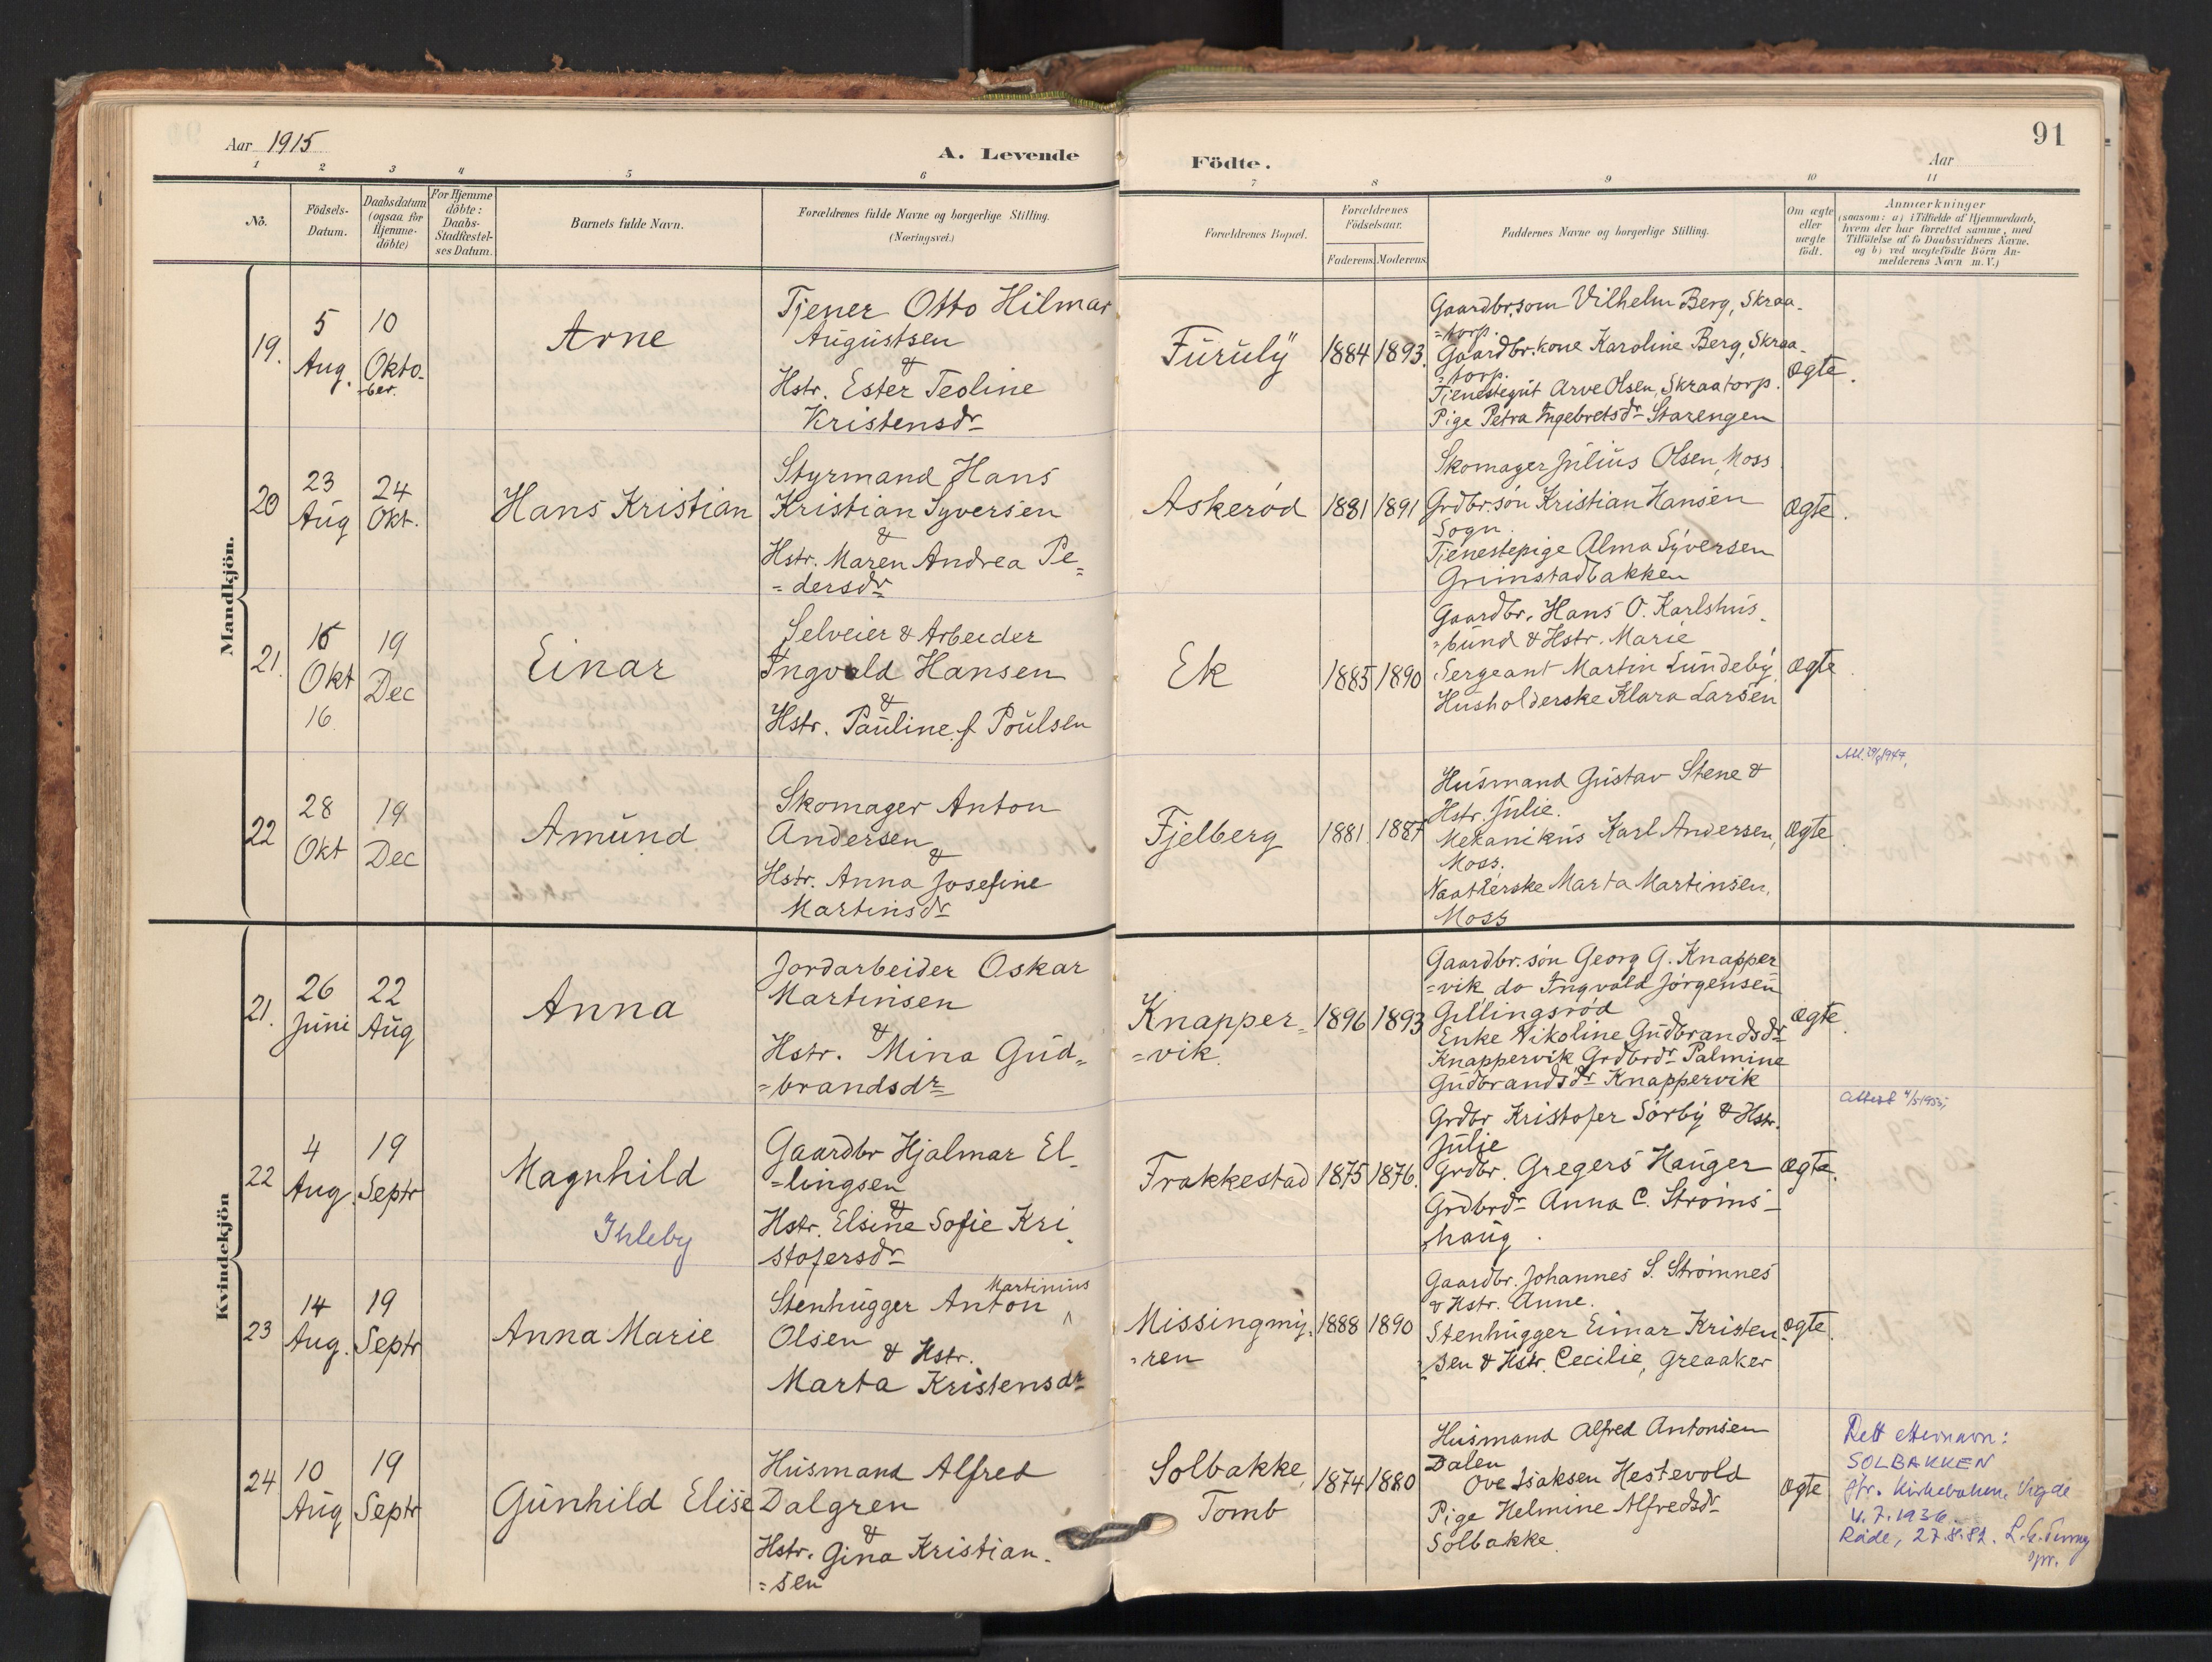 Aar 1915
A. Levende
Födte.
Aar
91
1 2 3 4 5 6 7 8 9 10 11
No.
Födsels-
Datum.
Daabsdatum
(ogsaa för
Hjemme-
döbte)
For Hjemme
döbte:
Daabs-
Stadfæstel-
ses Datum.
Barnets fulde Navn.
Forældrenes fulde Navne og borgerlige Stilling.
(Næringsvei.)
Forældrenes Bopæl.
Forældrenes
Födselsaar.
Faderens. Moderens.
Faddernes Navne og borgerlige Stilling.
Om ægte
eller
uægte
födt.
Anmærkninger
(saasom: a) i Tilfælde af Hjemmedaab,
hvem der har forrettet samme, med
Tilföielse af to Daabsvidners Navne.
og b) ved uægtefödte Börn An-
melderens Navn m.V.)
Mandkjön.
19.
5
Aug.
10
Okto-
-ber.
Arne
Tjener Otto Hilmar
Augustsen
&
Hstr. Ester Teoline
Kristensdr
Furuly
1884
1893.
Gaardbr.som Vilhelm Berg, Skraa-
=torp.
Gaardbr.kone Karoline Berg, Skraa-
=torp.
Tjenestegut Arve Olsen, Skraatorp.
Pige Petra Ingebretsdr Starengen
ægte.
20
23
Aug
24
Okt.
Hans Kristian
Styrmand Hans
Kristian Syversen
&
Hstr. Maren Andrea Pe=
=dersdr
Askerød
1881
1891
Skomager Julius Olsen, Moss
Grdbr.søn Kristian Hansen
Sogn.
Tjenestepige Alma Syversen
Grimstadbakken
ægte.
21.
Okt
16.
19
Dec
Einar
Selveier & Arbeider
Ingvald Hansen
&
Hstr. Pauline f Poulsen
Ek
1885
1890
Gaardbr. Hans O. Karlshus-
=bund & Hstr. Marie
Sergeant Martin Lundeby
Husholderske Klara Larsen
ægte.
22
28
Okt
19
Dec
Amund
Skomager Anton
Andersen
&
Hstr. Anna Josefine
Martinsdr
Fjelberg
1881.
1887
Husmand Gustav Stene &
Hstr. Julie.
Mekanikus Karl Andersen,
Moss.
Naatlerske Marta Martinsen,
Moss
ægte.
Kvindekjön
21.
26
Juni
22
Aug
Anna
Jordarbeider Oskar
Martinsen
&
Hstr. Mina Gud=
=brandsdr
Knapper=
=vik.
1896
1893
Gaardbr.søn Georg G. Knapper
=vik do Ingvald Jørgensen
Gillingsrød
Enke Nikoline Gudbrandsdr
Knappervik Grdbrdr Palmine
Gudbrandsdr Knappervik
ægte.
22
4
Aug.
19
Septr
Magnhild
Ihleby
Gaardbr Hjalmar El-
=lingsen
&
Hstr. Elsine Sofie Kri
stofersdr
Frakkestad
1875
1876.
Grdbr Kristofer Sørby & Hstr.
Julie
Grdbr. Gregers Hauger
Grdbrdr Anna C. Strøms-
haug.
ægte.
23
14
Aug.
19
Septr
Anna Marie
Martinius
Stenhugger Anton
Olsen
& Hstr.
Marta Kristensdr
Missingmy-
=ren
1888
1890
Gaardbr. Johannes S. Strømnes
& Hstr. Anne.
Stenhugger Einar Kristen
sen & Hstr. Cecilie, Greaaker
ægte.
24
10
Aug
19
Septr
Gunhild Elise
Husmand Alfred
Dalgren
&
Hstr. Gina Kristian-
=sen
Solbakke,
Tomb
1874
1880
Husmand Alfred Antonsen
Dalen
Ove Isaksen Hestevold
Pige Helmine Alfredsdr
Solbakke.
ægte
Rett etternavn:
SOLBAKKEN
Jfr. kirkeboken
4.7.1936.
Råde, 27.8.82.